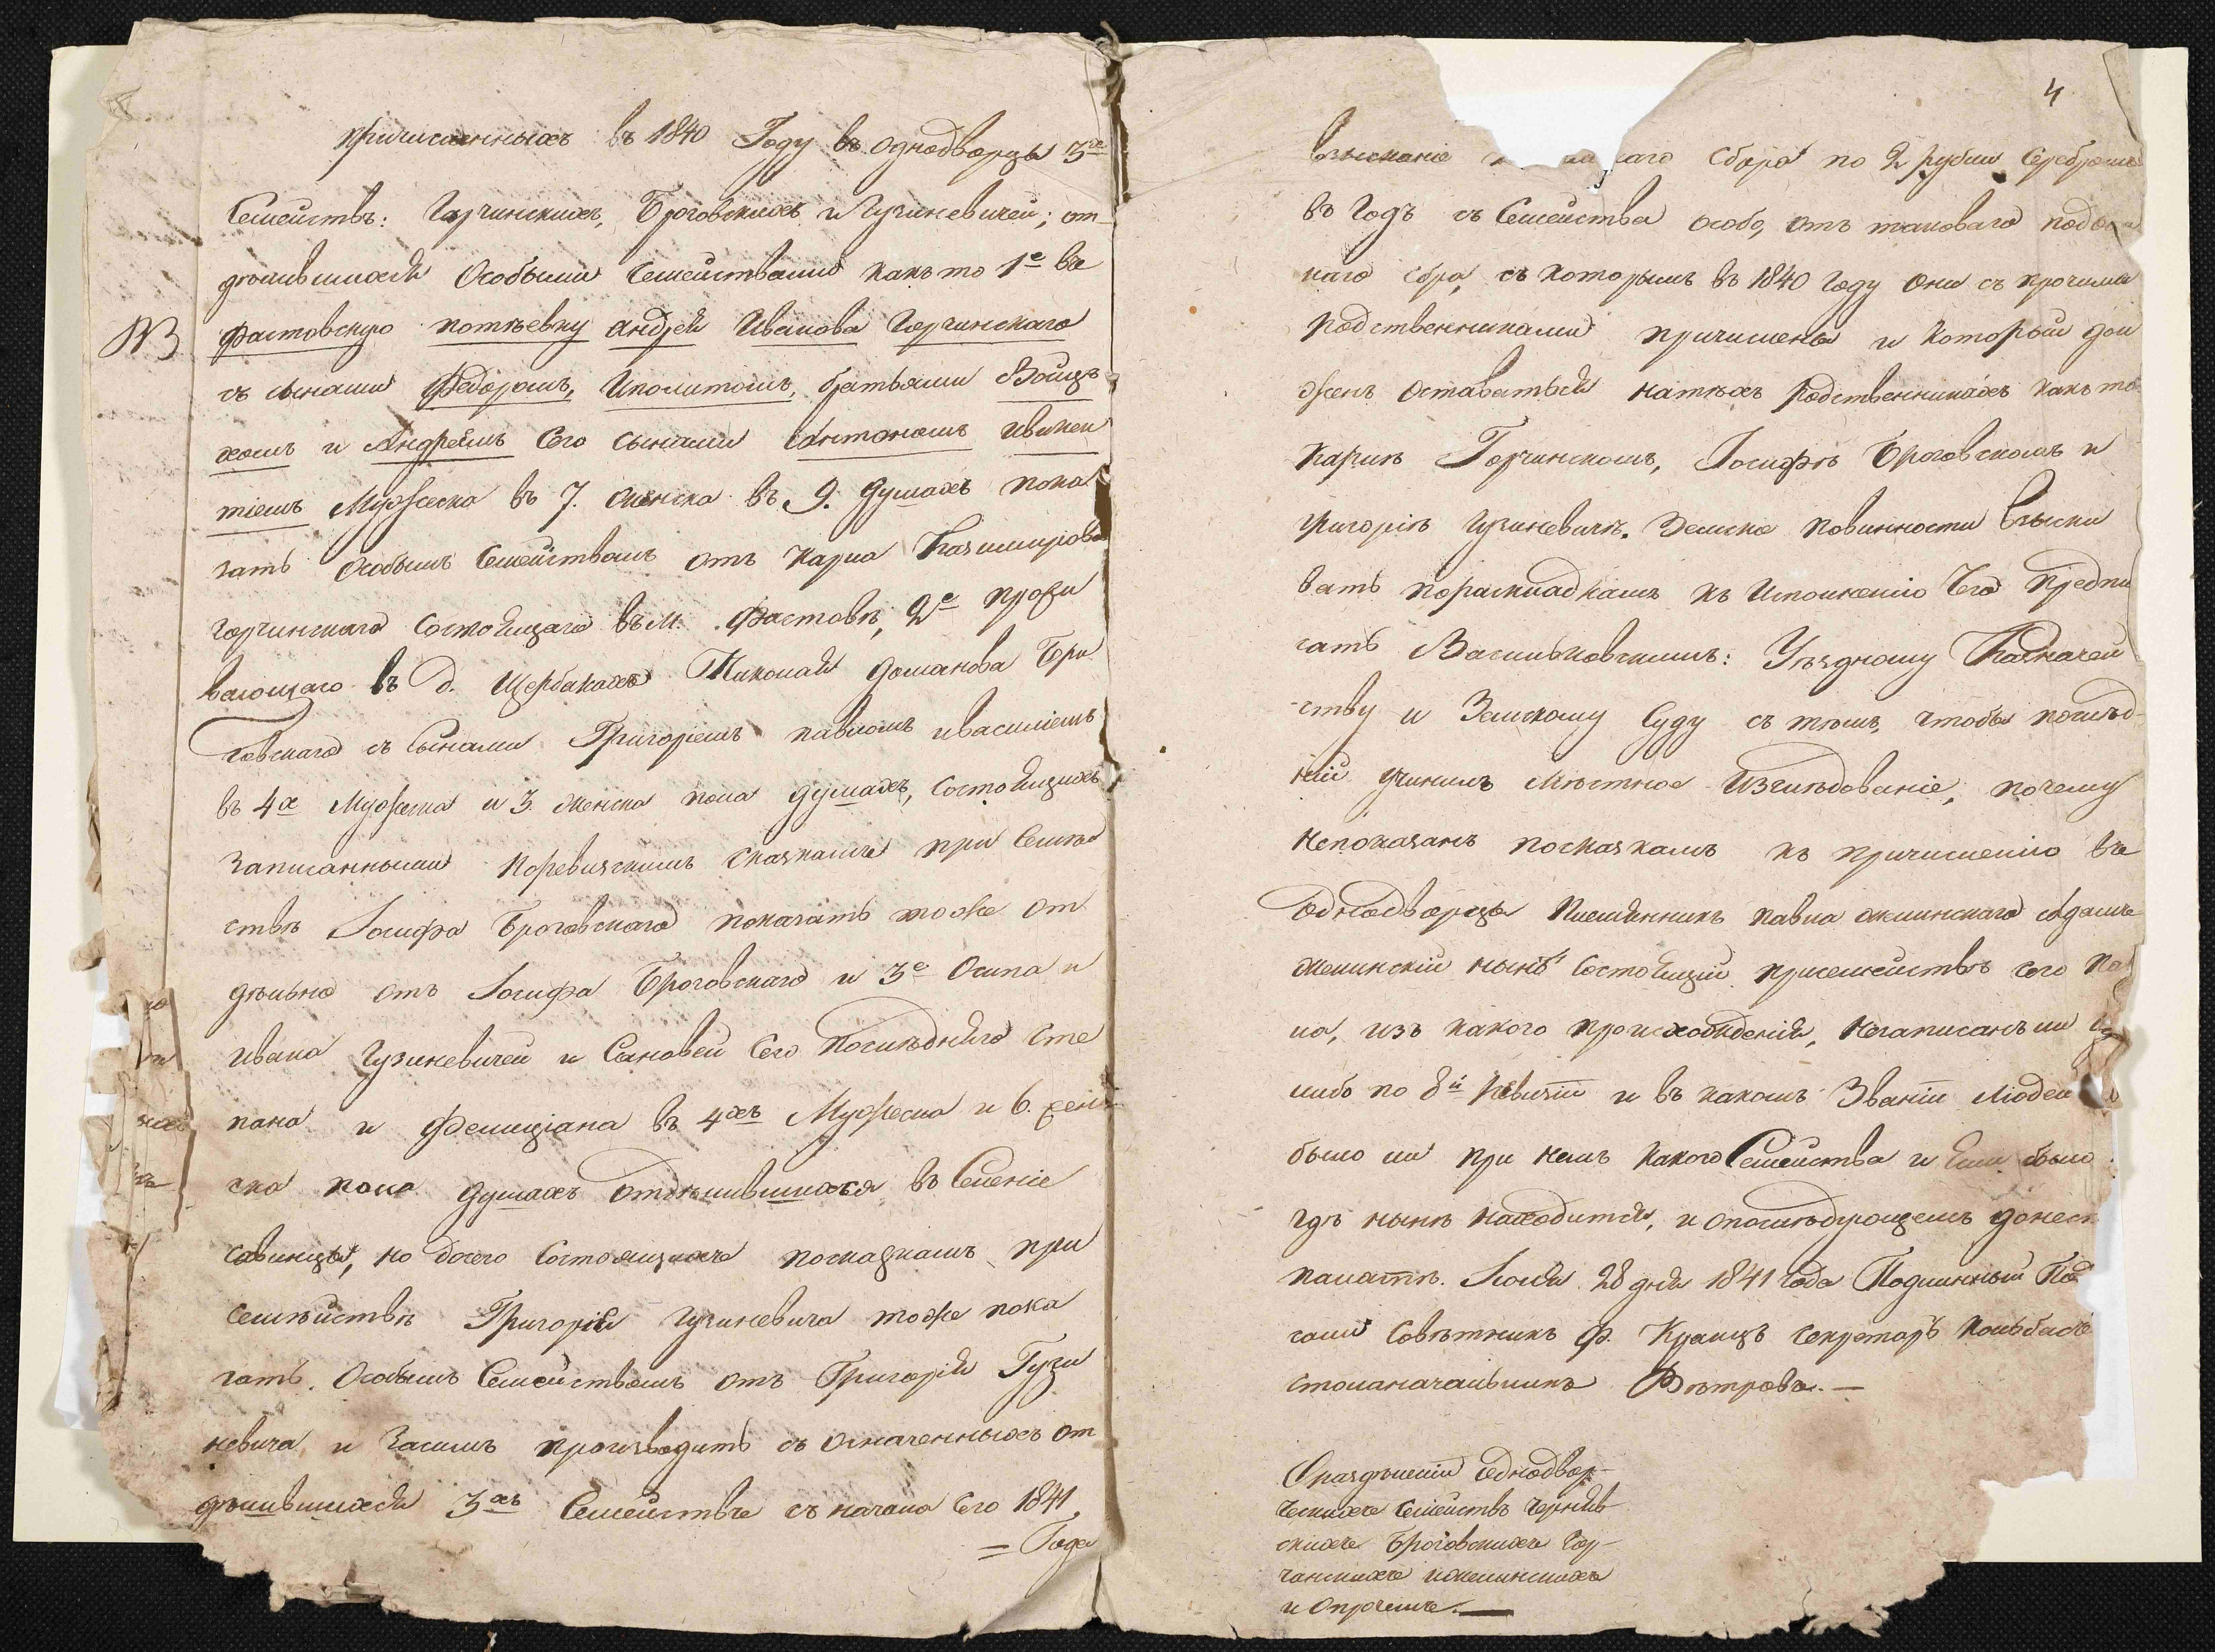 причисленныхъ въ 1840 Году въ однодворцы 3х
Семействъ: Горчинскихъ, Броговскихъ и Гузиневичей; от-
дѣлившихся Особыми Семействами какъ то 1е въ
NB фастовскую потѣевку андрей Иванова Горчинскаго
съ сынами Федоромъ, Иполитомъ, братьями Войцѣ
хомъ и Андреемъ Его сынами Антономъ ивикен
тіемъ Мужеска въ 7. женска въ 9. душахъ пока
зать Особымъ Семействомъ отъ Карла Казимирова
горчинскаго Состоящаго въ м. Фастовѣ, 2е прожи
вающаго въ д. Щербакахъ Николая доманова Бро
говскаго съ Сынами Григоріемъ павломъ ивасиліемъ
въ 4х Мужеска и 3. женска пола душахъ, Состоящихъ
Записанными Поревизскимъ сказкамъ при Семѣй
ствѣ Іосифа Броговскаго показать тоже от
дѣльно отъ Іосифа Броговскаго и 3е Осипа и
ивана Гузиневичей и Сыновей Его Послѣдняго Сте
пана и Фелиціана въ 4хъ Мужеска и 6. жен
ска пола душахъ отдѣлившихся въ Селеніе
савинцы, но досего Состоящихъ посказкамъ при
семѣйствѣ Григорія Гузиневича тоже пока
зать. Особымъ Семействомъ отъ Григорія Гузи
невича, и Засимъ производить съ означенныхъ от
дѣлившихся 3хъ Семействъ съ начала Сего 1841
= Года
4
взысканіе сбора по 2 рубли Серебромъ
въ Годъ съ Семейства особо, отъ таковаго подым
наго сбора, съ которымъ въ 1840 Году Они съ прочими
родственниками причислены и который дол
женъ Оставаться натѣхъ родственникахъ какъ то
Карлѣ Горчинскомъ, Іосифѣ Броговскомъ и
григоріѣ Гузиневичѣ. Земскіе повинности взыски
вать пораскладкамъ къ Исполненію Чего предпи
сать Васильковскимъ: Уѣздному Казначей
ству и Земскому Суду съ тѣмъ, чтобы послѣд-
ній учинилъ Мѣстное Изслѣдованіе, почему
непоказанъ посказкамъ къ причисленію въ
Однодворцы Племянникъ павла жилинскаго Адамъ
жилинскій нынѣ Состоящій присемействѣ сего Пав
ла, изъ какого происхожденія, незаписанъ ли гдѣ
либо по 8й Ревизіи и въ какомъ Званіи Людей
было ли при немъ какого Семейства и Если было
гдѣ нынѣ находится, и опослѣдующемъ донест
палатѣ. Іюля 28 дня 1841 Года Подлинный Под
сали Совѣтникъ Ф. Кранцъ Секретарь
столаначальникъ Вѣтровъ.—
Ораздѣленіи однодвор-
ческихъ Семействъ Черняв-
скихъ Броговскихъ Гор-
чанскихъ ижелинскихъ
и Опрочемъ.—